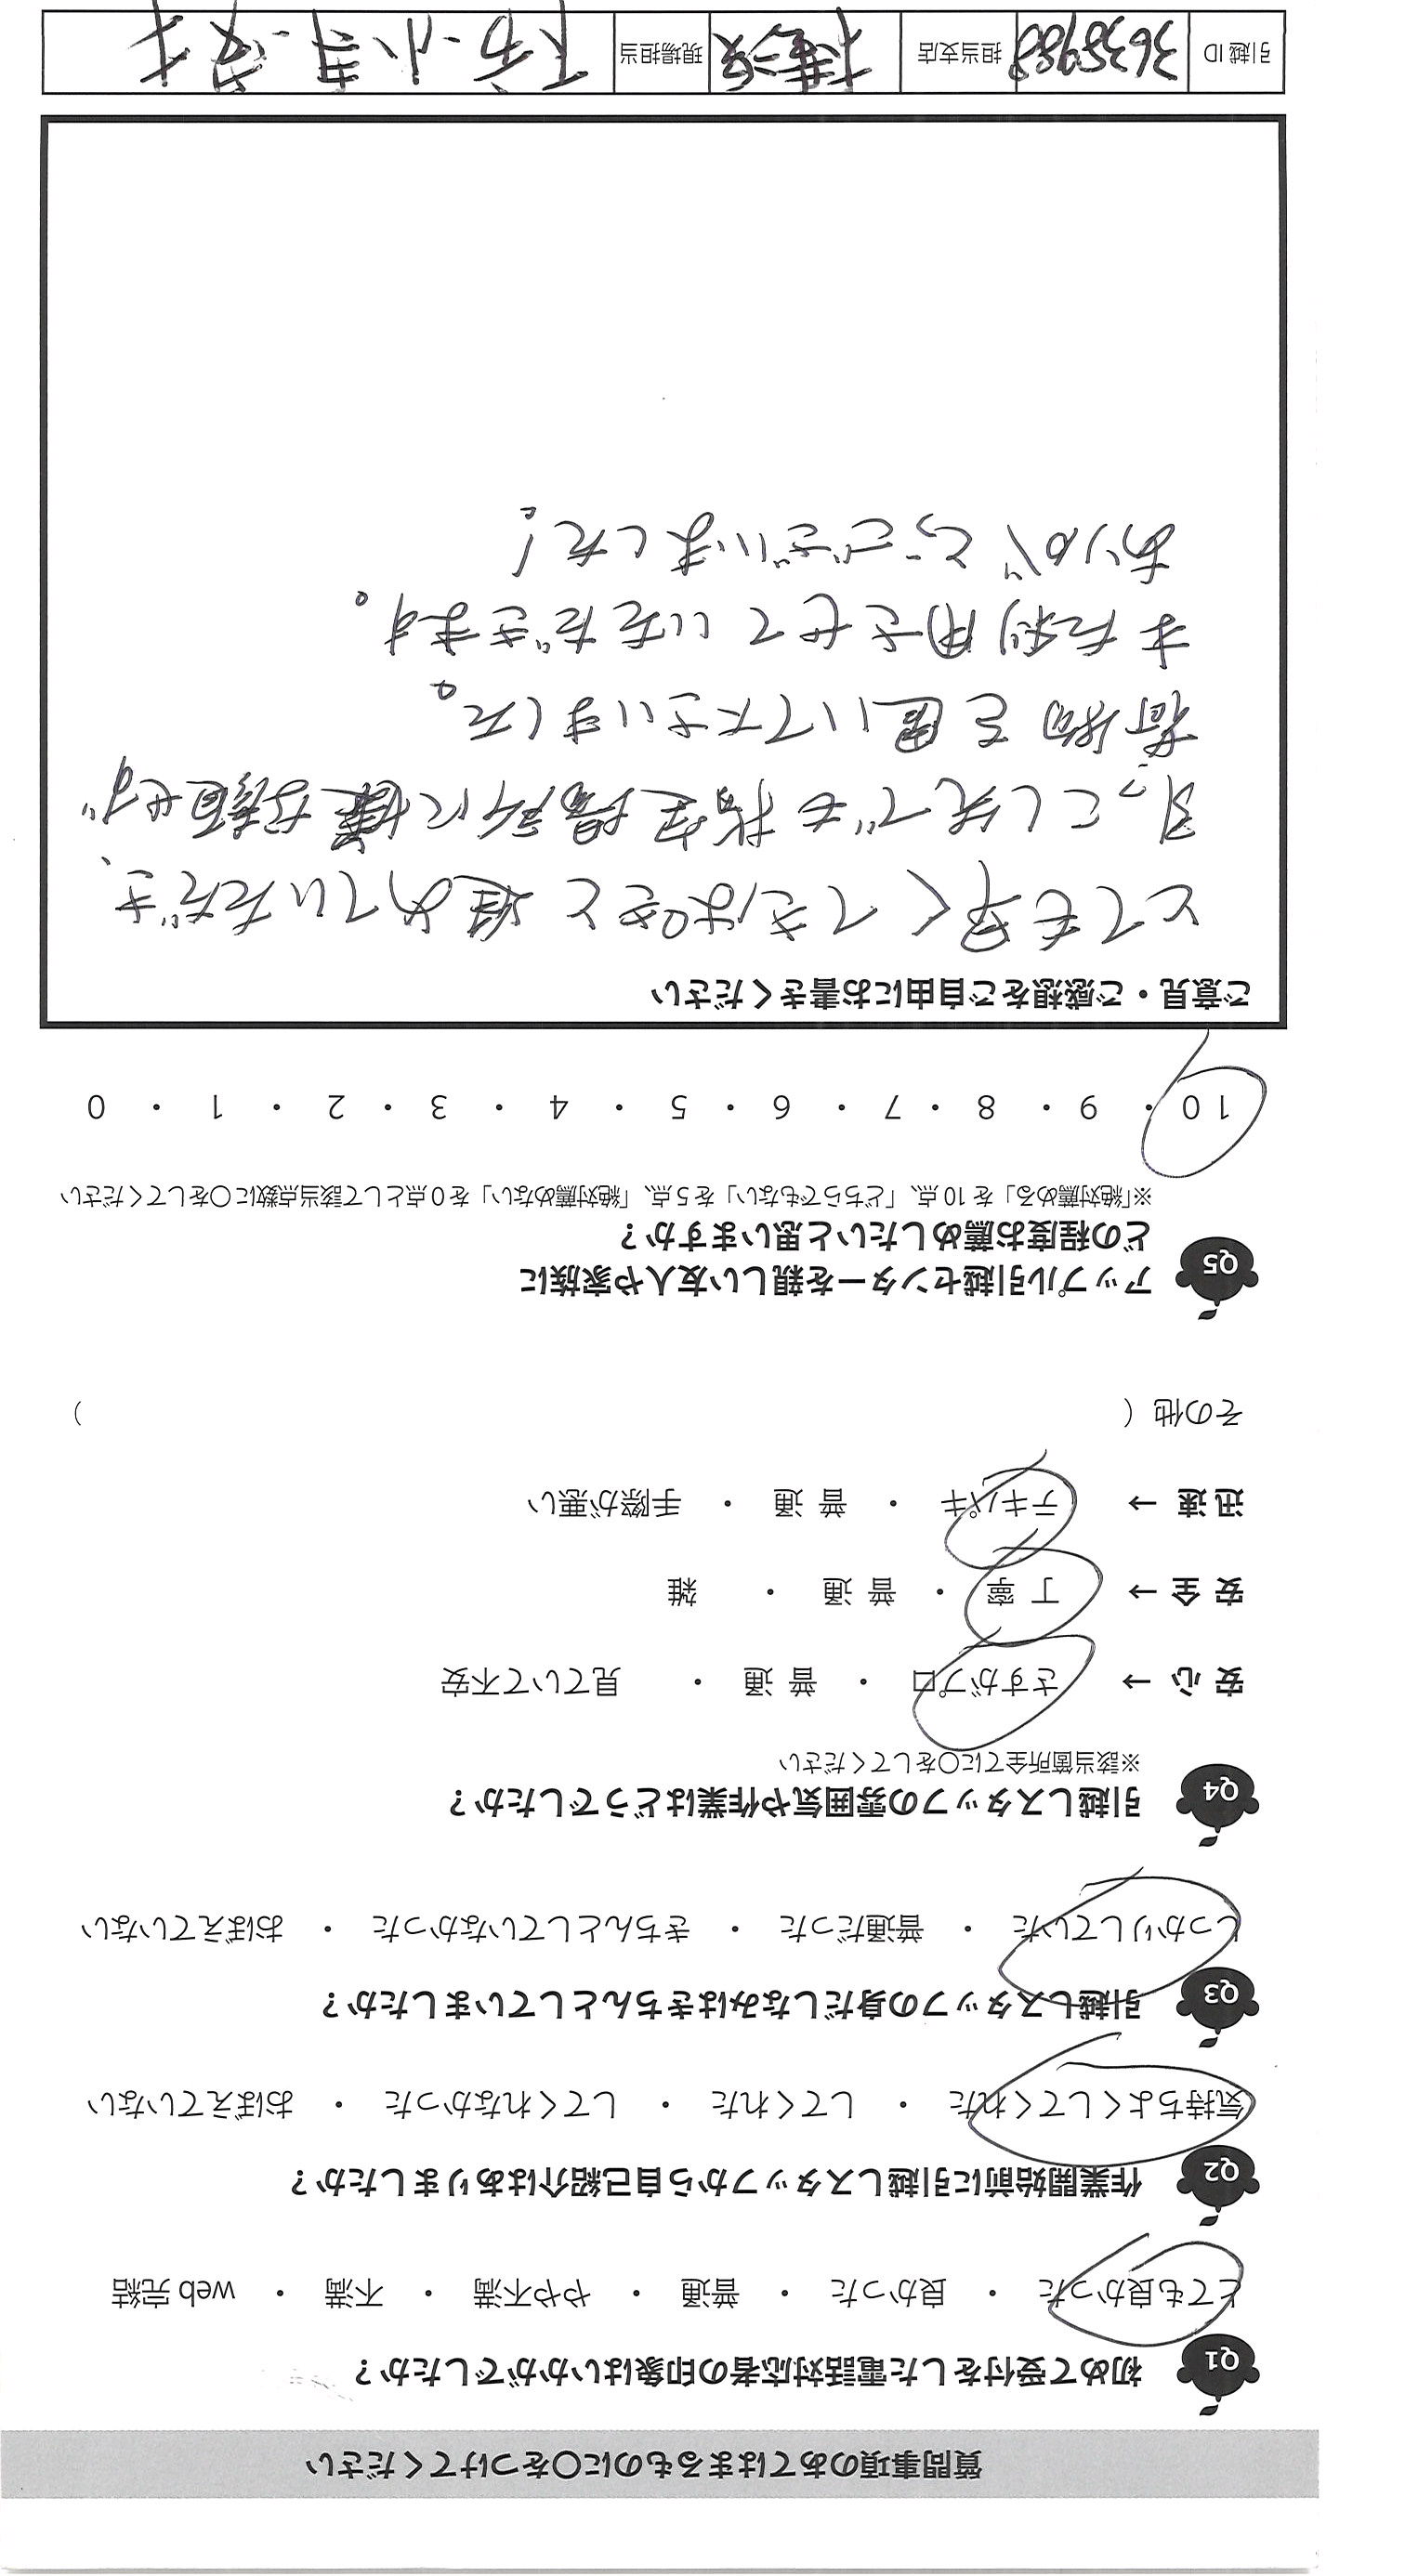 質問事項のあてはまるものに〇をつけてください
Q1 初めて受付をした電話対応者の印象はいかがでしたか？
とても良かった ・ 良かった ・ 普通 ・ やや不満 ・ 不満 ・ web 完結
Q2 作業開始前に引越しスタッフから自己紹介はありましたか？
気持ちよくしてくれた ・ してくれた ・ してくれなかった ・ おぼえていない
Q3 引越しスタッフの身だしなみはきちんとしていましたか？
しっかりしていた ・ 普通だった ・ きちんとしていなかった ・ おぼえていない
Q4 引越しスタッフの雰囲気や作業はどうでしたか？
※該当箇所全てに〇をしてください
安 心 → さすがプロ ・ 普 通 ・ 見ていて不安
安 全 → 丁 寧 ・ 普 通 ・ 雑
迅 速 → テキパキ ・ 普 通 ・ 手際が悪い
その他（ ）
Q5 アップル引越センターを親しい友人や家族に
どの程度お薦めしたいと思いますか？
※「絶対薦める」を 10 点、「どちらでもない」を 5 点、「絶対薦めない」を 0 点として該当点数に〇をしてください
10 ・ 9 ・ 8 ・ 7 ・ 6 ・ 5 ・ 4 ・ 3 ・ 2 ・ 1 ・ 0
ご意見・ご感想をご自由にお書きください
とても早くてきぱきと進めていただき、
引っこし先でも指定場所に嫌な顔せず
荷物を置いて下さいました。
また利用させていただきます。
ありがとうございました！
引越 ID 3635988 担当支店 横浜 現場担当